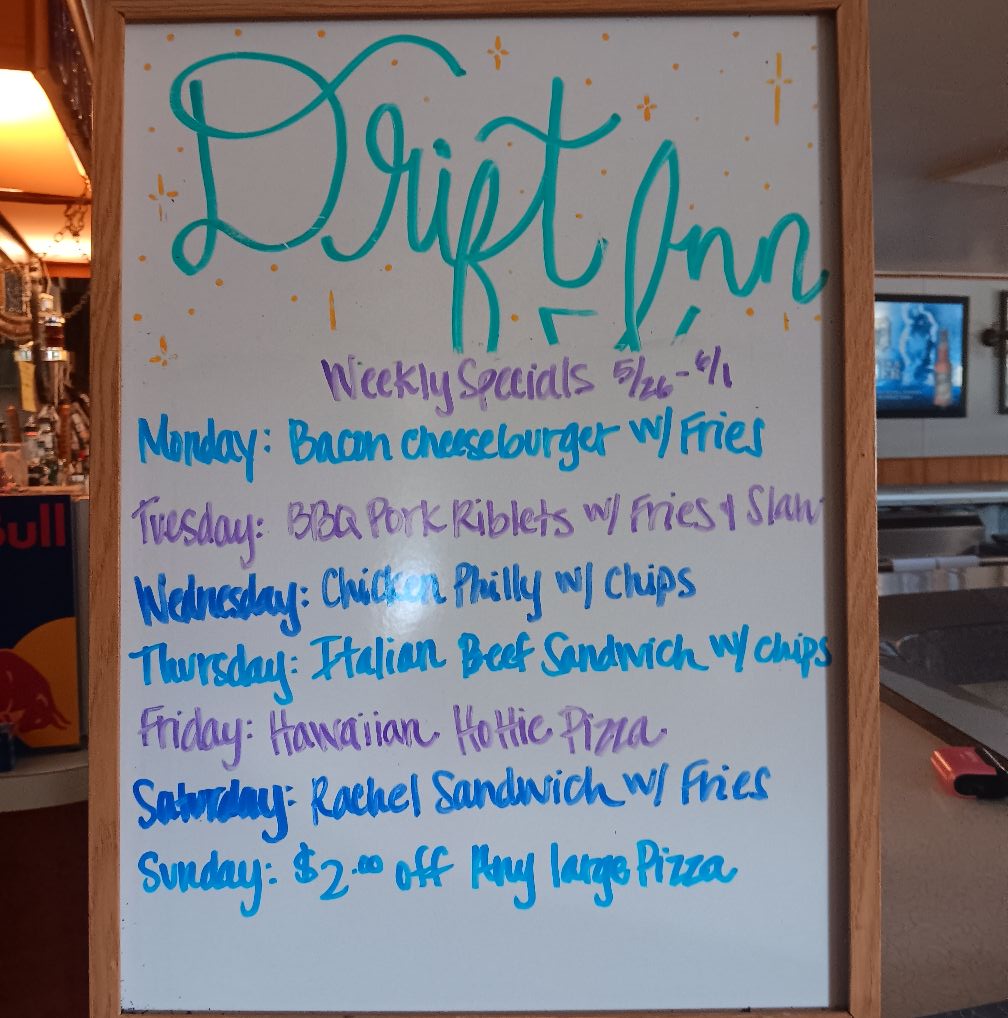 Drift Inn
Weekly Specials 5/26-6/1
Monday: Bacon cheeseburger w/ Fries
Tuesday: BBQ Pork Riblets w/ Fries & Slaw
Wednesday: Chicken Philly w/ Chips
Thursday: Italian Beef Sandwich w/ chips
Friday: Hawaiian Hottie Pizza
Saturday: Rachel Sandwich w/ Fries
Sunday: $2.00 off Any large Pizza
Bull